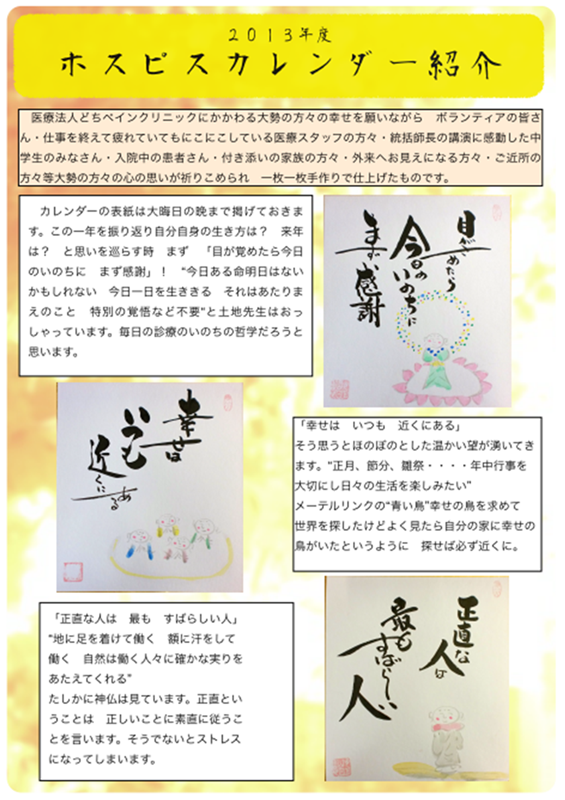 2013年度
ホスピスカレンダー紹介
医療法人どちペインクリニックにかかわる大勢の方々の幸せを願いながら　ボランティアの皆さ
ん・仕事を終えて疲れていてもにこにこしている医療スタッフの方々・統括師長の講演に感動した中
学生のみなさん・入院中の患者さん・付き添いの家族の方々・外来へお見えになる方々・ご近所の
方々等大勢の方々の心の思いが祈りこめられ　一枚一枚手作りで仕上げたものです。
カレンダーの表紙は大晦日の晩まで掲げておきま
す。この一年を振り返り自分自身の生き方は？　来年
は？　と思いを巡らす時　まず　「目が覚めたら今日
のいのちに　まず感謝」！　“今日ある命明日はない
かもしれない　今日一日を生ききる　それはあたりま
えのこと　特別の覚悟など不要”と土地先生はおっ
しゃっています。毎日の診療のいのちの哲学だろうと
思います。
目がさめたら
今日の
いのちに
まず感謝
幸せは
いつも
近くに
ある
「幸せは　いつも　近くにある」
そう思うとほのぼのとした温かい望が湧いてき
ます。“正月、節分、雛祭・・・・年中行事を
大切にし日々の生活を楽しみたい”
メーテルリンクの“青い鳥”幸せの鳥を求めて
世界を探したけどよく見たら自分の家に幸せの
鳥がいたというように　探せば必ず近くに。
「正直な人は　最も　すばらしい人」
“地に足を着けて働く　額に汗をして
働く　自然は働く人々に確かな実りを
あたえてくれる”
たしかに神仏は見ています。正直とい
うことは　正しいことに素直に従うこ
とを言います。そうでないとストレス
になってしまいます。
正直な
人は
最も
すばらしい
人